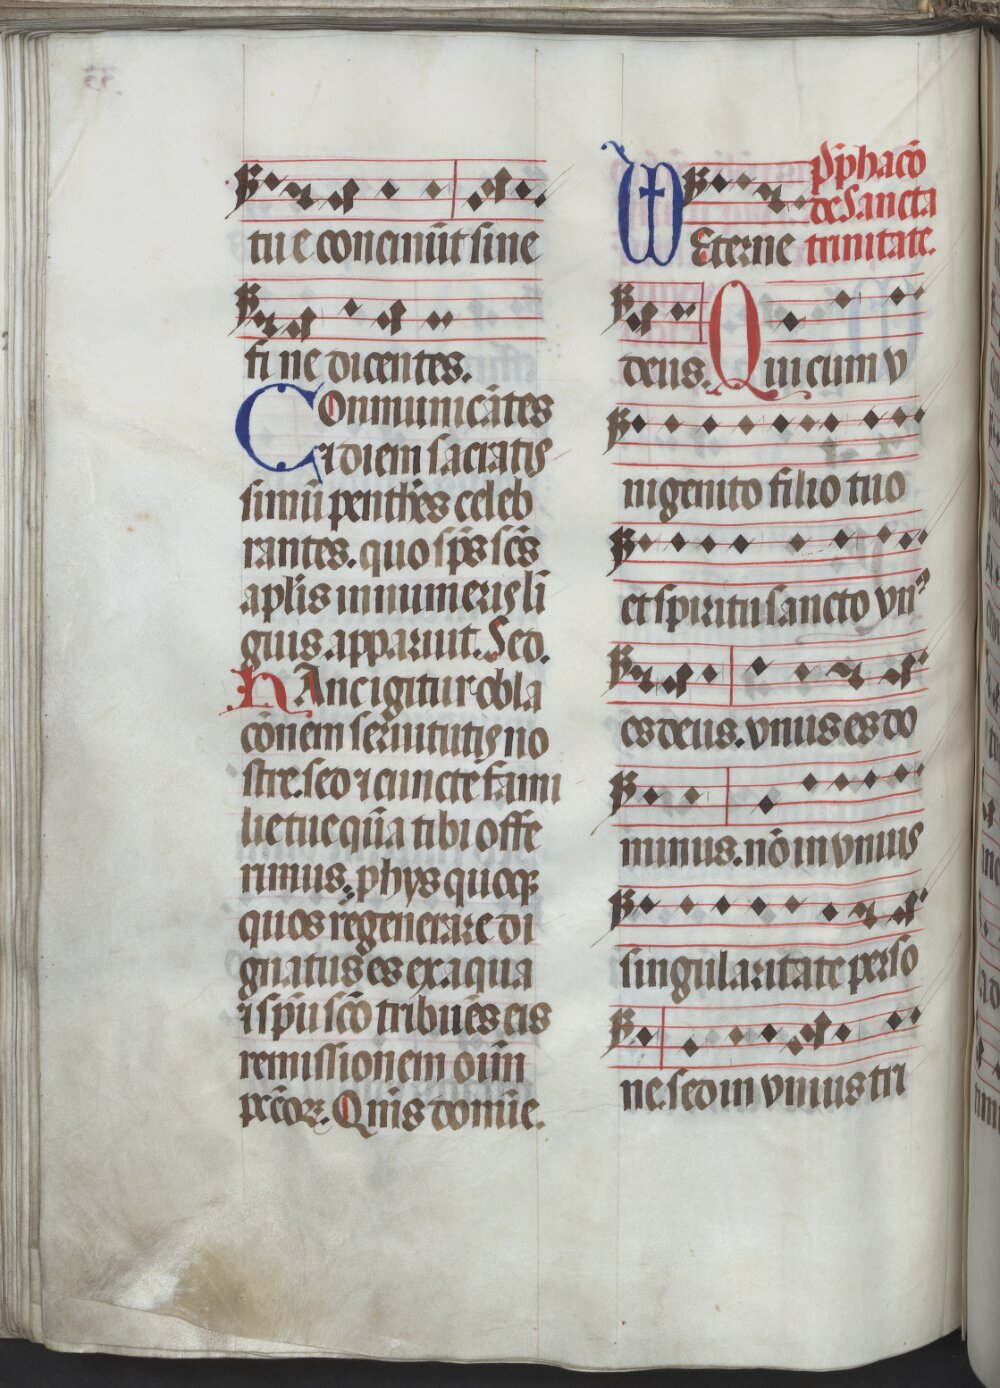 tue concinūt sine
fine dicentes.
Conmunicātes
⁊ diem sacratis
simū penthēs celeb
rantes. quo sp̄s sc̄s
aplīs innumeris li
guis apparuit. Sed.
Hanc igitur obla
cōnem seruitutis no
stre. sed ⁊ cuncte fami
lie tue q̄m̄a tibi offe
rimus. p hys quoqꝫ
quos regenerare di
gnatus es ex aqua
⁊ sp̄u sc̄o tribuēs eis
remissionem oīm
pccōꝝ. Qm̄s domīe.
p̄phacō
de sancta
Eterne trinitate.
deus. Qui cum v
nigenito filio tuo
et spiritu sancto vnꝰ
es deus. vnus es do
minus. nō in vnius
singularitate perso
ne. sed in vnius tri